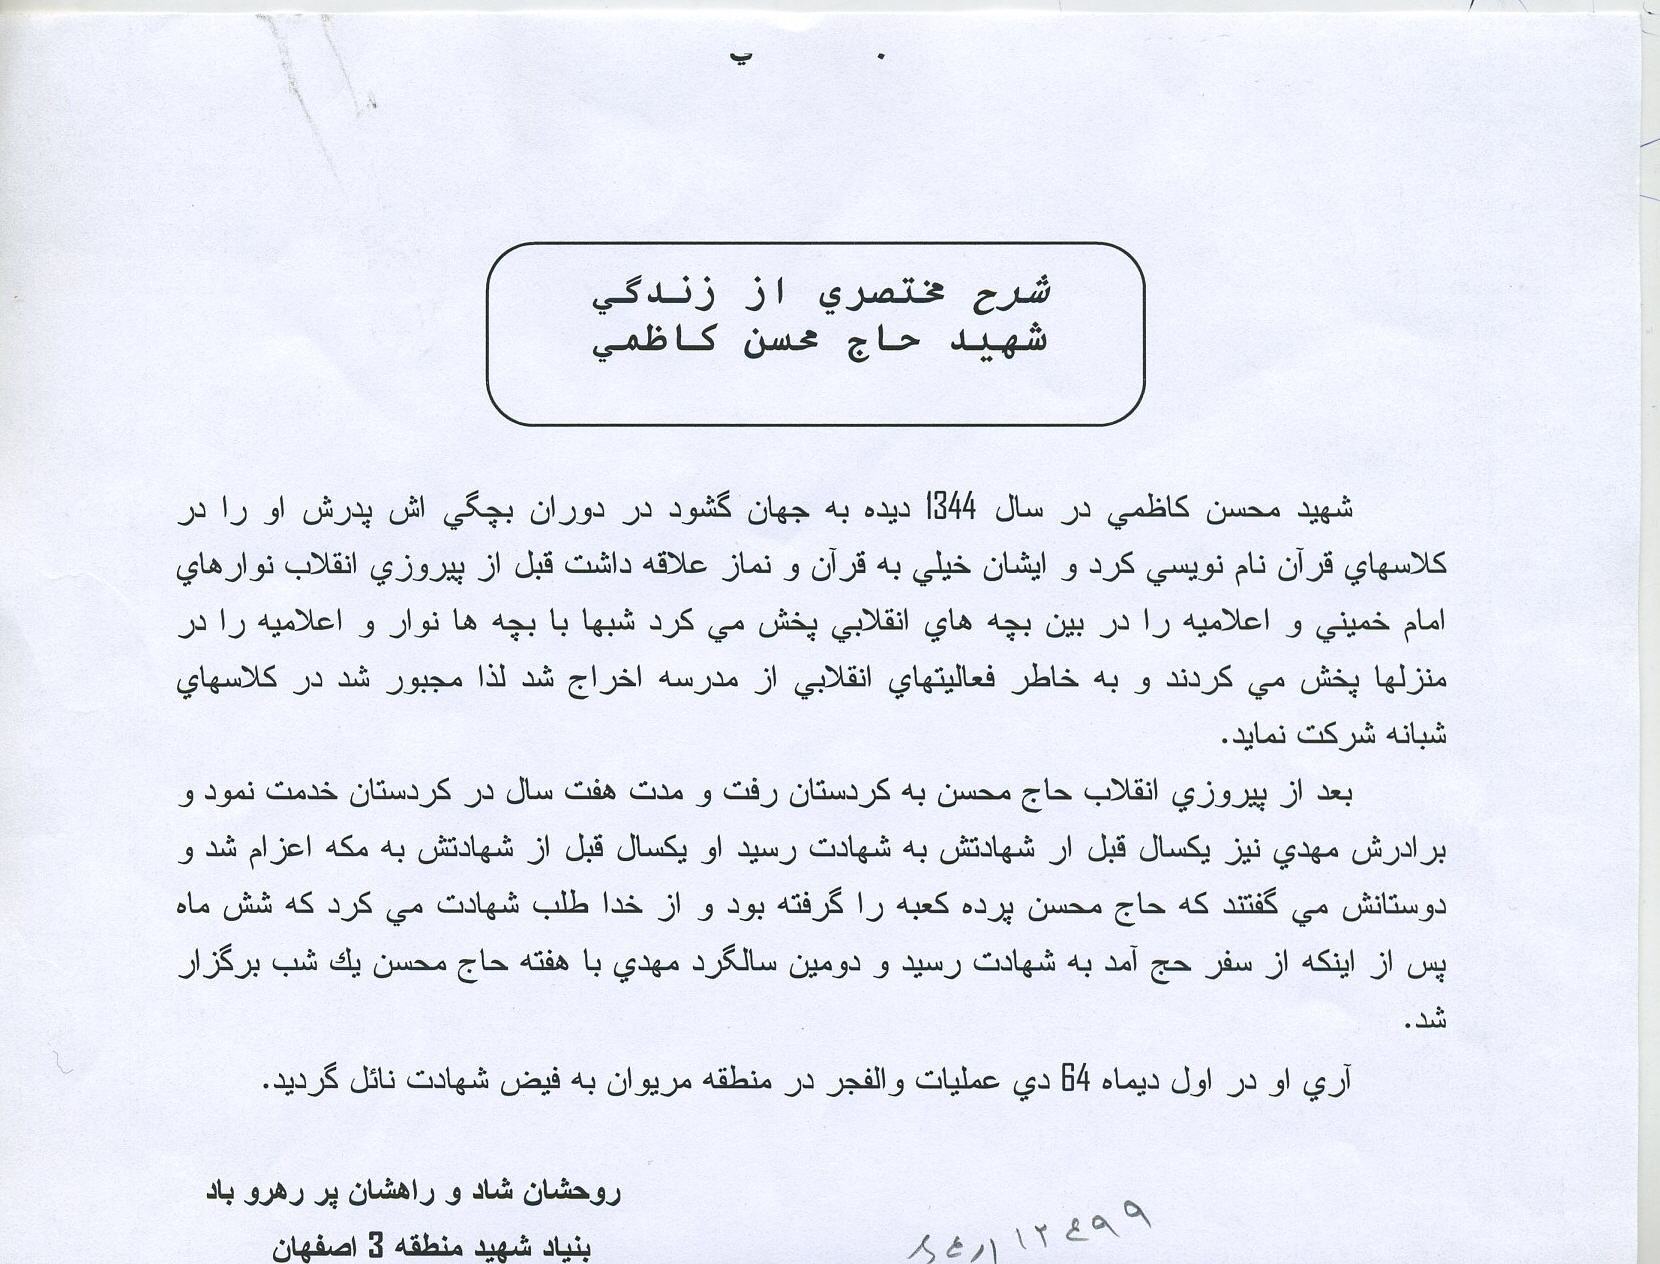 شرح مختصري از زندگي
شهيد حاج محسن كاظمي
شهيد محسن كاظمي در سال 1344 ديده به جهان گشود در دوران بچگي اش پدرش او را در
كلاسهاي قرآن نام نويسي كرد و ايشان خيلي به قرآن و نماز علاقه داشت قبل از پيروزي انقلاب نوارهاي
امام خميني و اعلاميه را در بين بچه هاي انقلابي پخش مي كرد شبها با بچه ها نوار و اعلاميه را در
منزلها پخش مي كردند و به خاطر فعاليتهاي انقلابي از مدرسه اخراج شد لذا مجبور شد در كلاسهاي
شبانه شركت نمايد.
بعد از پيروزي انقلاب حاج محسن به كردستان رفت و مدت هفت سال در كردستان خدمت نمود و
برادرش مهدي نيز يكسال قبل ار شهادتش به شهادت رسيد او يكسال قبل از شهادتش به مكه اعزام شد و
دوستانش مي گفتند كه حاج محسن پرده كعبه را گرفته بود و از خدا طلب شهادت مي كرد كه شش ماه
پس از اينكه از سفر حج آمد به شهادت رسيد و دومين سالگرد مهدي با هفته حاج محسن يك شب برگزار
شد.
آري او در اول ديماه 64 دي عمليات والفجر در منطقه مريوان به فيض شهادت نائل گرديد.
روحشان شاد و راهشان پر رهرو باد
بنياد شهيد منطقه 3 اصفهان